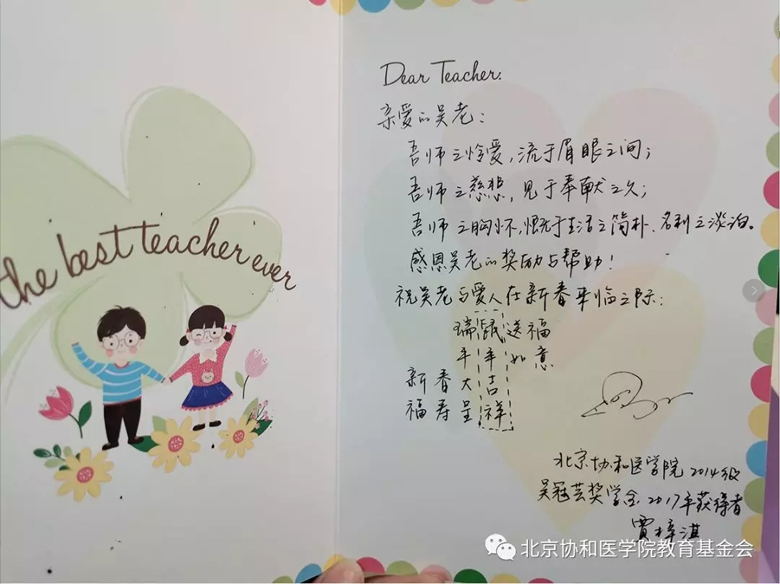 the best teacher ever
Dear Teacher:
亲爱的吴老：
吾师之怜爱，流于眉眼之间；
吾师之慈悲，见于奉献之久；
吾师之胸怀，恒于生活之简朴、名利之淡泊。
感恩吴老的奖励与帮助！
祝吴老与爱人在新春来临之际：
瑞鼠送福
平年如意
新春大吉
福寿呈祥
北京协和医学院2014级
吴冠芸奖学金2017年获得者
贾梓淇
北京协和医学院教育基金会